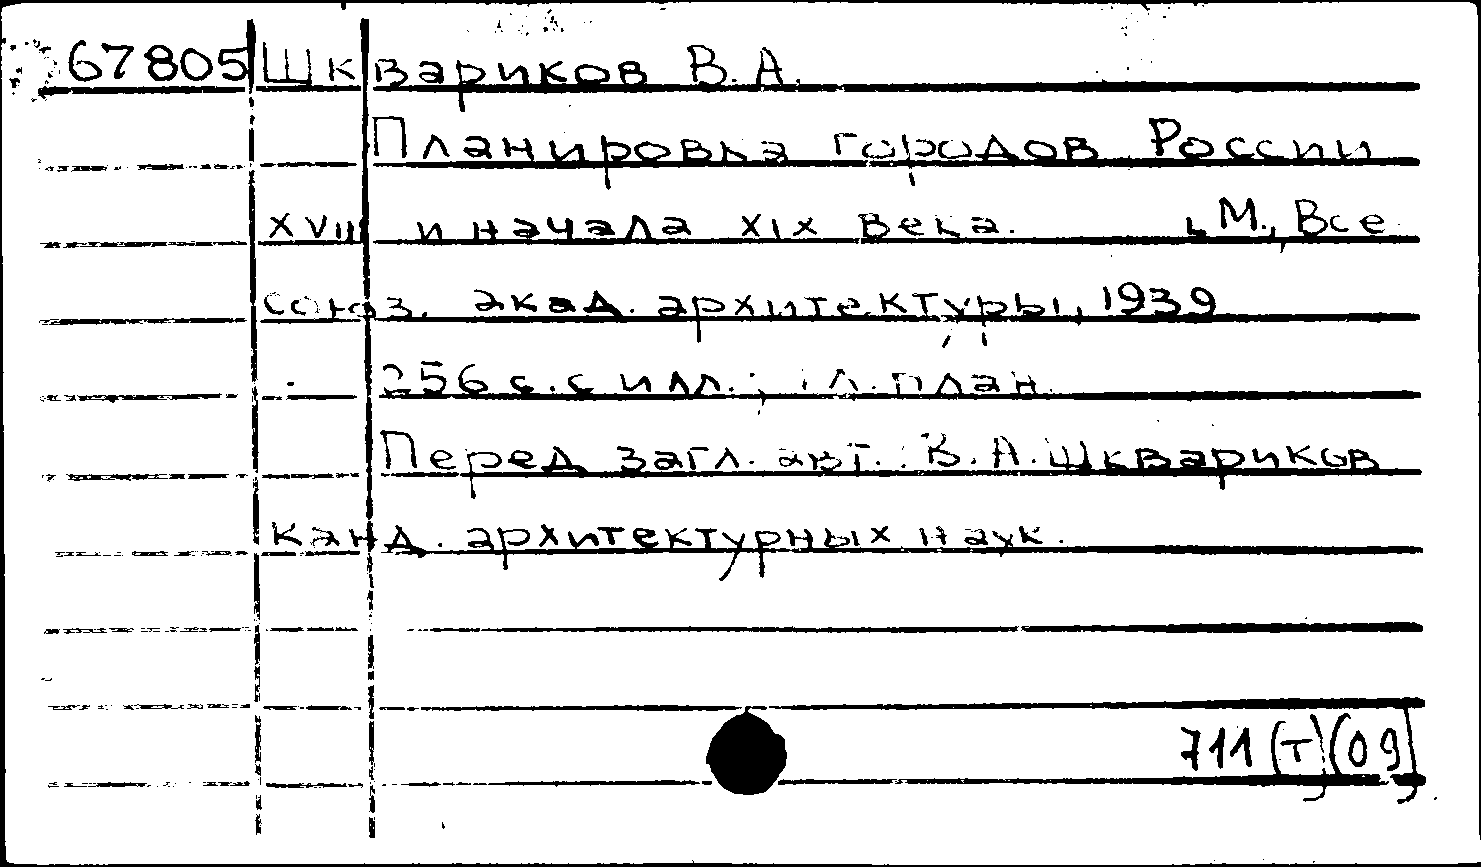 67805 Шквариков В. А.
Планировка городов России
XVIII и начала XIX века. М., Все
союз. акад. архитектуры, 1939
256 с. с илл.; 1 л. план.
Перед загл. авт.: В. А. Шквариков
канд. архитектурных наук.
711(Т)(09)